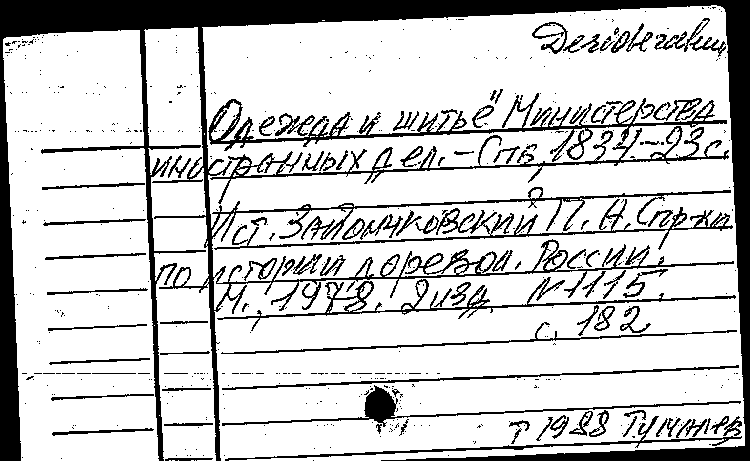 Одежда и шитьё Министерства
иностранных дел. – Спб, 1834. – 23 с.
Ист. Зайончковский П. А. Спр-ки
по истории доревол. России.
М., 1978. 2 изд. N 1115.
с. 182
т 1988 Тумалев